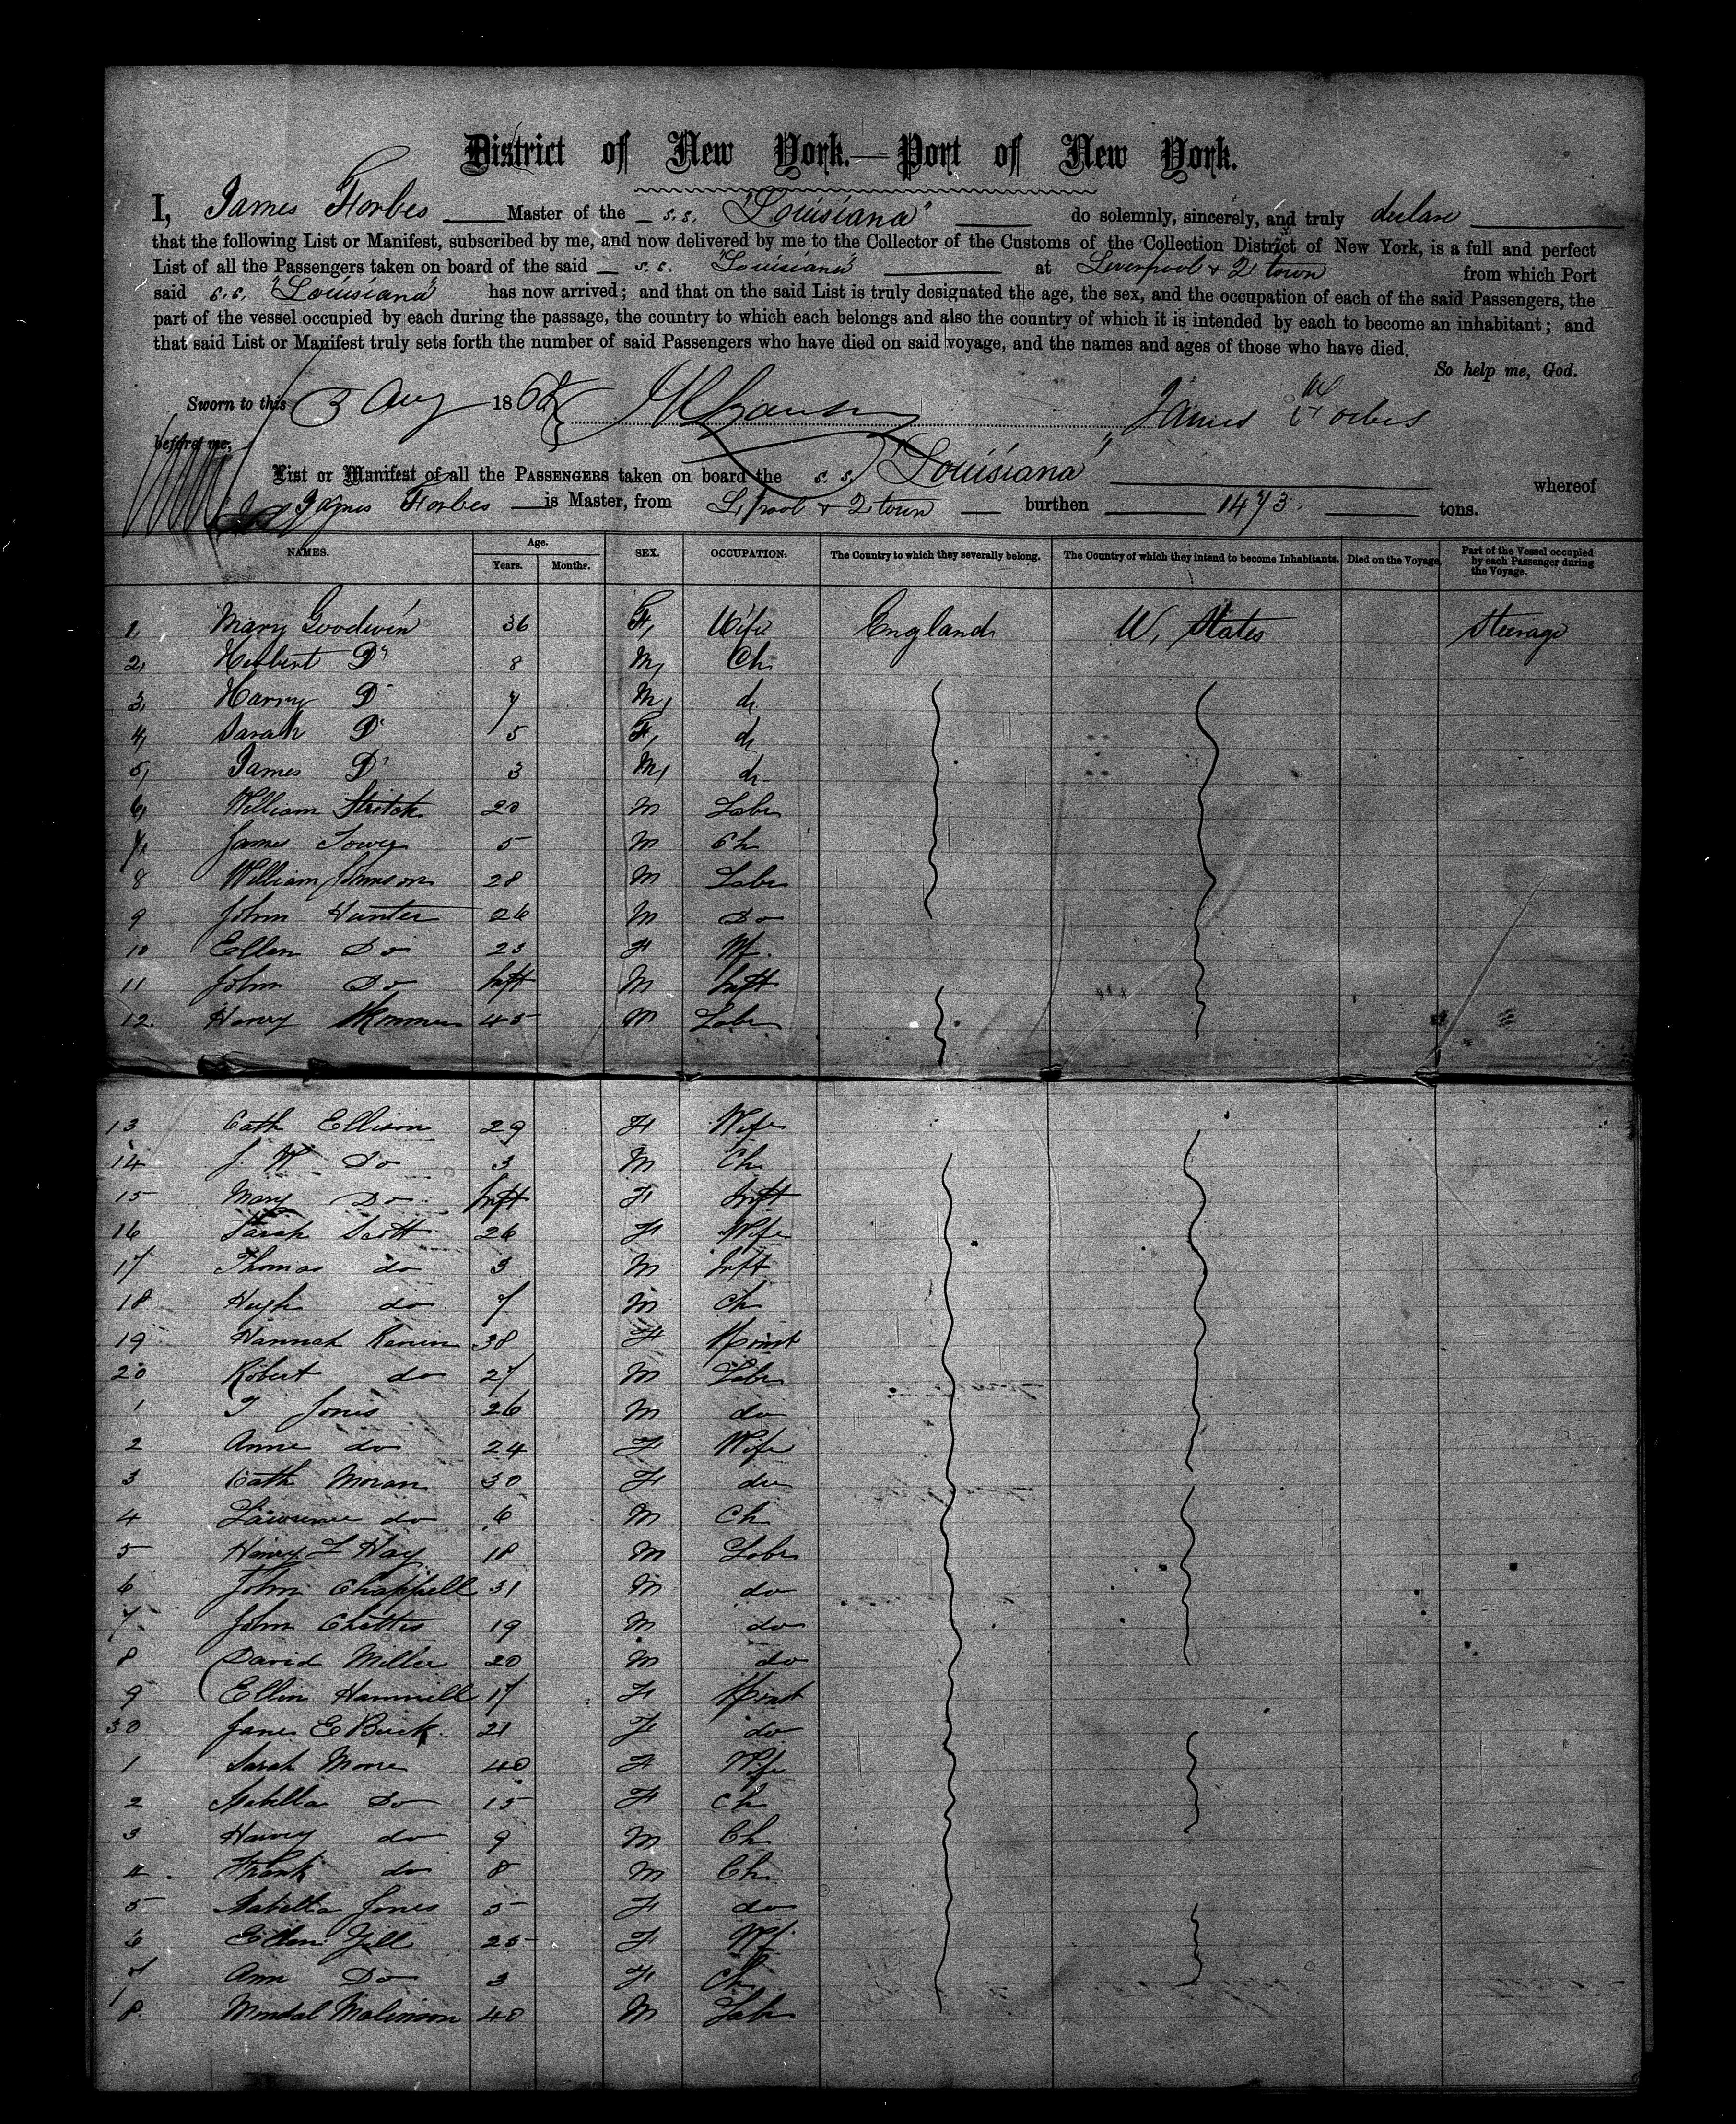 District of New York.—Port of New York.
I, James Forbes Master of the s.s. "Louisiana" do solemnly, sincerely, and truly declare
that the following List or Manifest, subscribed by me, and now delivered by me to the Collector of the Customs of the Collection District of New York, is a full and perfect
List of all the Passengers taken on board of the said s.s. "Louisiana" at Liverpool & Q town from which Port
said s.s. "Louisiana" has now arrived; and that on the said List is truly designated the age, the sex, and the occupation of each of the said Passengers, the
part of the vessel occupied by each during the passage, the country to which each belongs and also the country of which it is intended by each to become an inhabitant; and
that said List or Manifest truly sets forth the number of said Passengers who have died on said voyage, and the names and ages of those who have died.
So help me, God.
Sworn to this 3 Aug 186 James Forbes
before me,
List or Manifest of all the PASSENGERS taken on board the s.s. "Louisiana" whereof
James Forbes is Master, from L'pool & Q town burthen 1473. tons.
NAMES. Age. Years. Months. SEX. OCCUPATION. The Country to which they severally belong. The Country of which they intend to become Inhabitants. Died on the Voyage. Part of the Vessel occupied by each Passenger during the Voyage.
1, Mary Goodwin 36 F, Wife England U, States Steerage
2, Herbert Do 8 M, Ch
3, Harry Do 7 M, do
4, Sarah Do 5 F, do
5, James Do 3 M, do
6, William 20 M Labr
7, James 5 M Ch
8 William Johnson 28 M Labr
9 John Hunter 26 M Do
10 Ellen Do 23 F Wf.
11 John Do Inft M Inft
12. Henry 45 M Labr
13 Cath Ellison 29 F Wife
14 J. W Do 3 M Ch
15 Mary Do Inft F Inft
16 Sarah Scott 26 F Wife
17 Thomas do 3 M Inft
18 Hugh do 7 M Ch
19 Hannah 38 F Spinst
20 Robert do 27 M Labr
1 T Jones 26 M do
2 Anne do 24 F Wife
3 Cath Moran 30 F do
4 Lawrence do 6 M Ch
5 Henry L Hay 18 M Labr
6 John Chappell 31 M do
7 John 19 M do
8 David Miller 20 M do
9 Ellen Hammill 17 F Spinst
30 Jane E Buck 21 F do
1 Sarah Moore 40 F Wife
2 Isabella Do 15 F Ch
3 Harvey do 9 M Ch
4 Frank do 8 M Ch
5 Isabella Jones 5 F do
6 Ellen Gill 25 F Wf
7 Ann Do 3 F Ch
8 40 M Labr